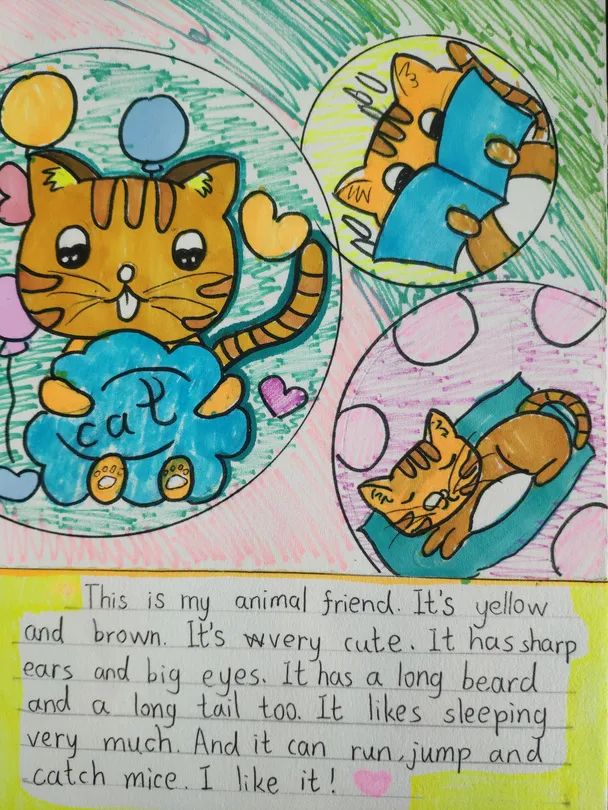 cat
This is my animal friend. It's yellow
and brown. It's wvery cute. It has sharp
ears and big eyes. It has a long beard
and a long tail too. It likes sleeping
very much. And it can run, jump and
catch mice. I like it!